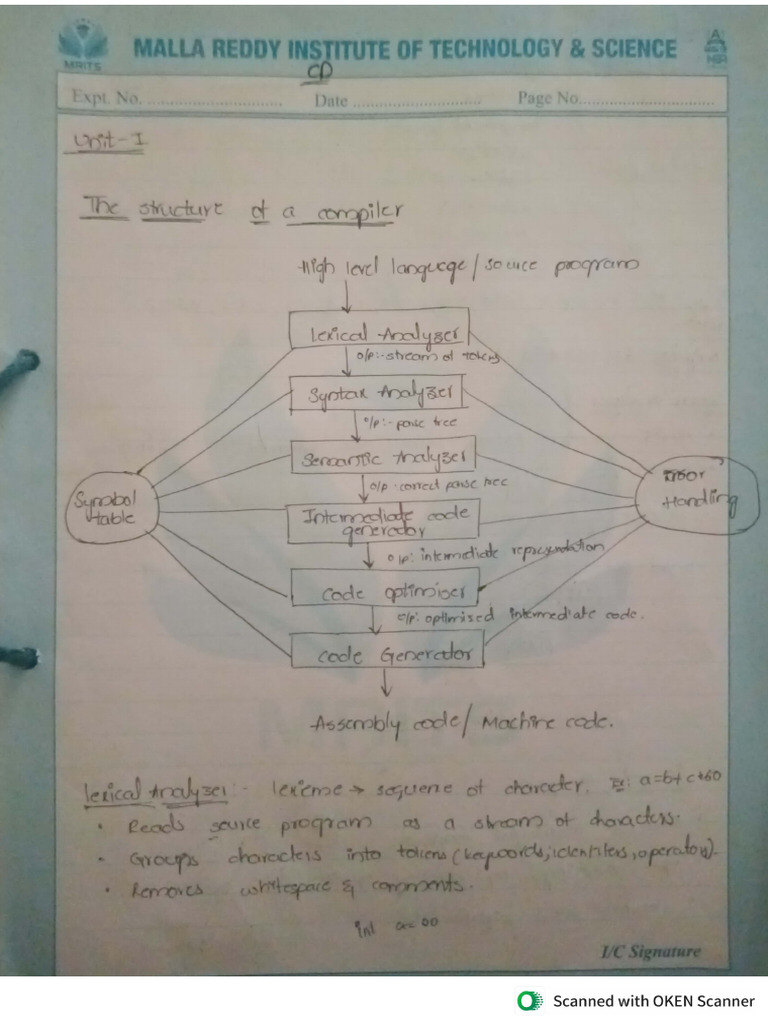 MRITS
MALLA REDDY INSTITUTE OF TECHNOLOGY & SCIENCE
CD
Expt. No. Date Page No.
Unit-I
The structure of a compiler
High level language/source program
Lexical Analyzer
O/P:-stream of tokens
Syntax Analyzer
O/P:- parse tree
Semantic Analyzer
O/P:-correct parse tree
Symbol table
Error Handling
Intermediate code generator
O/P: intermediate representation
Code optimiser
O/P: optimised intermediate code.
Code Generator
Assembly code/ Machine code.
Lexical Analyzer:- lexeme → sequene of character. Ex: a=b+c+60
• Reads source program as a stream of characters.
• Groups characters into tokens (keywords, identifiers, operators).
• Removes whitespace & comments.
int a=
I/C Signature
Scanned with OKEN Scanner